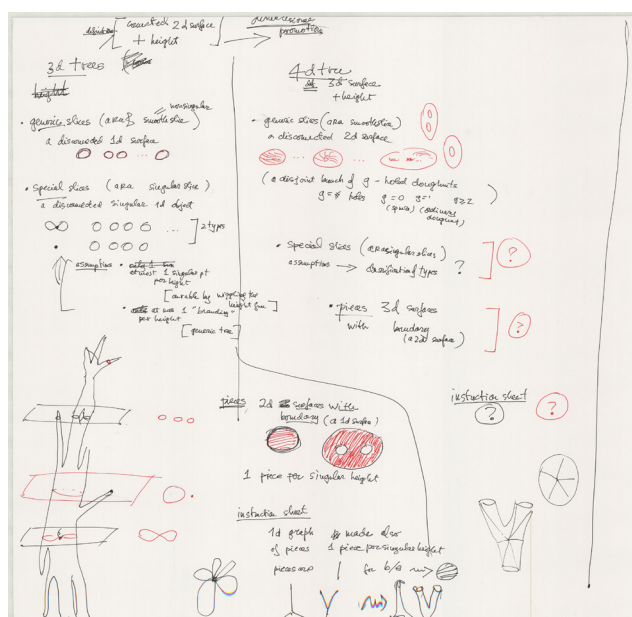 connected 2d surface
+ height
dimensional
promotion
3d trees
height
nonsingular
• generic slices (aka smooth slice)
a disconnected 1d surface
...
• special slices (aka singular slice)
a disconnected singular 1d object
...
...
2 types
assumptions
at most 1 singular pt
per height
[curable by wiggling the
height fxn]
• at most 1 "branching"
per height
[generic tree]
4d tree
3d surface
+ height
• generic slices (aka smooth slices)
a disconnected 2d surface
... ...
(a disjoint bunch of g-holed doughnuts
g = # holes g=0 g=1 g≥2 )
(sphere) (ordinary
doughnut)
• special slices (aka singular slices)
assumptions → classification of types ?
?
• pieces 3d surfaces
with boundary
(a 2d surface)
?
pieces 2d surfaces with
boundary (a 1d surface)
1 piece for singular height
instruction sheet
? ?
instruction sheet
1d graph made also
of pieces 1 piece per singular height
pieces are for